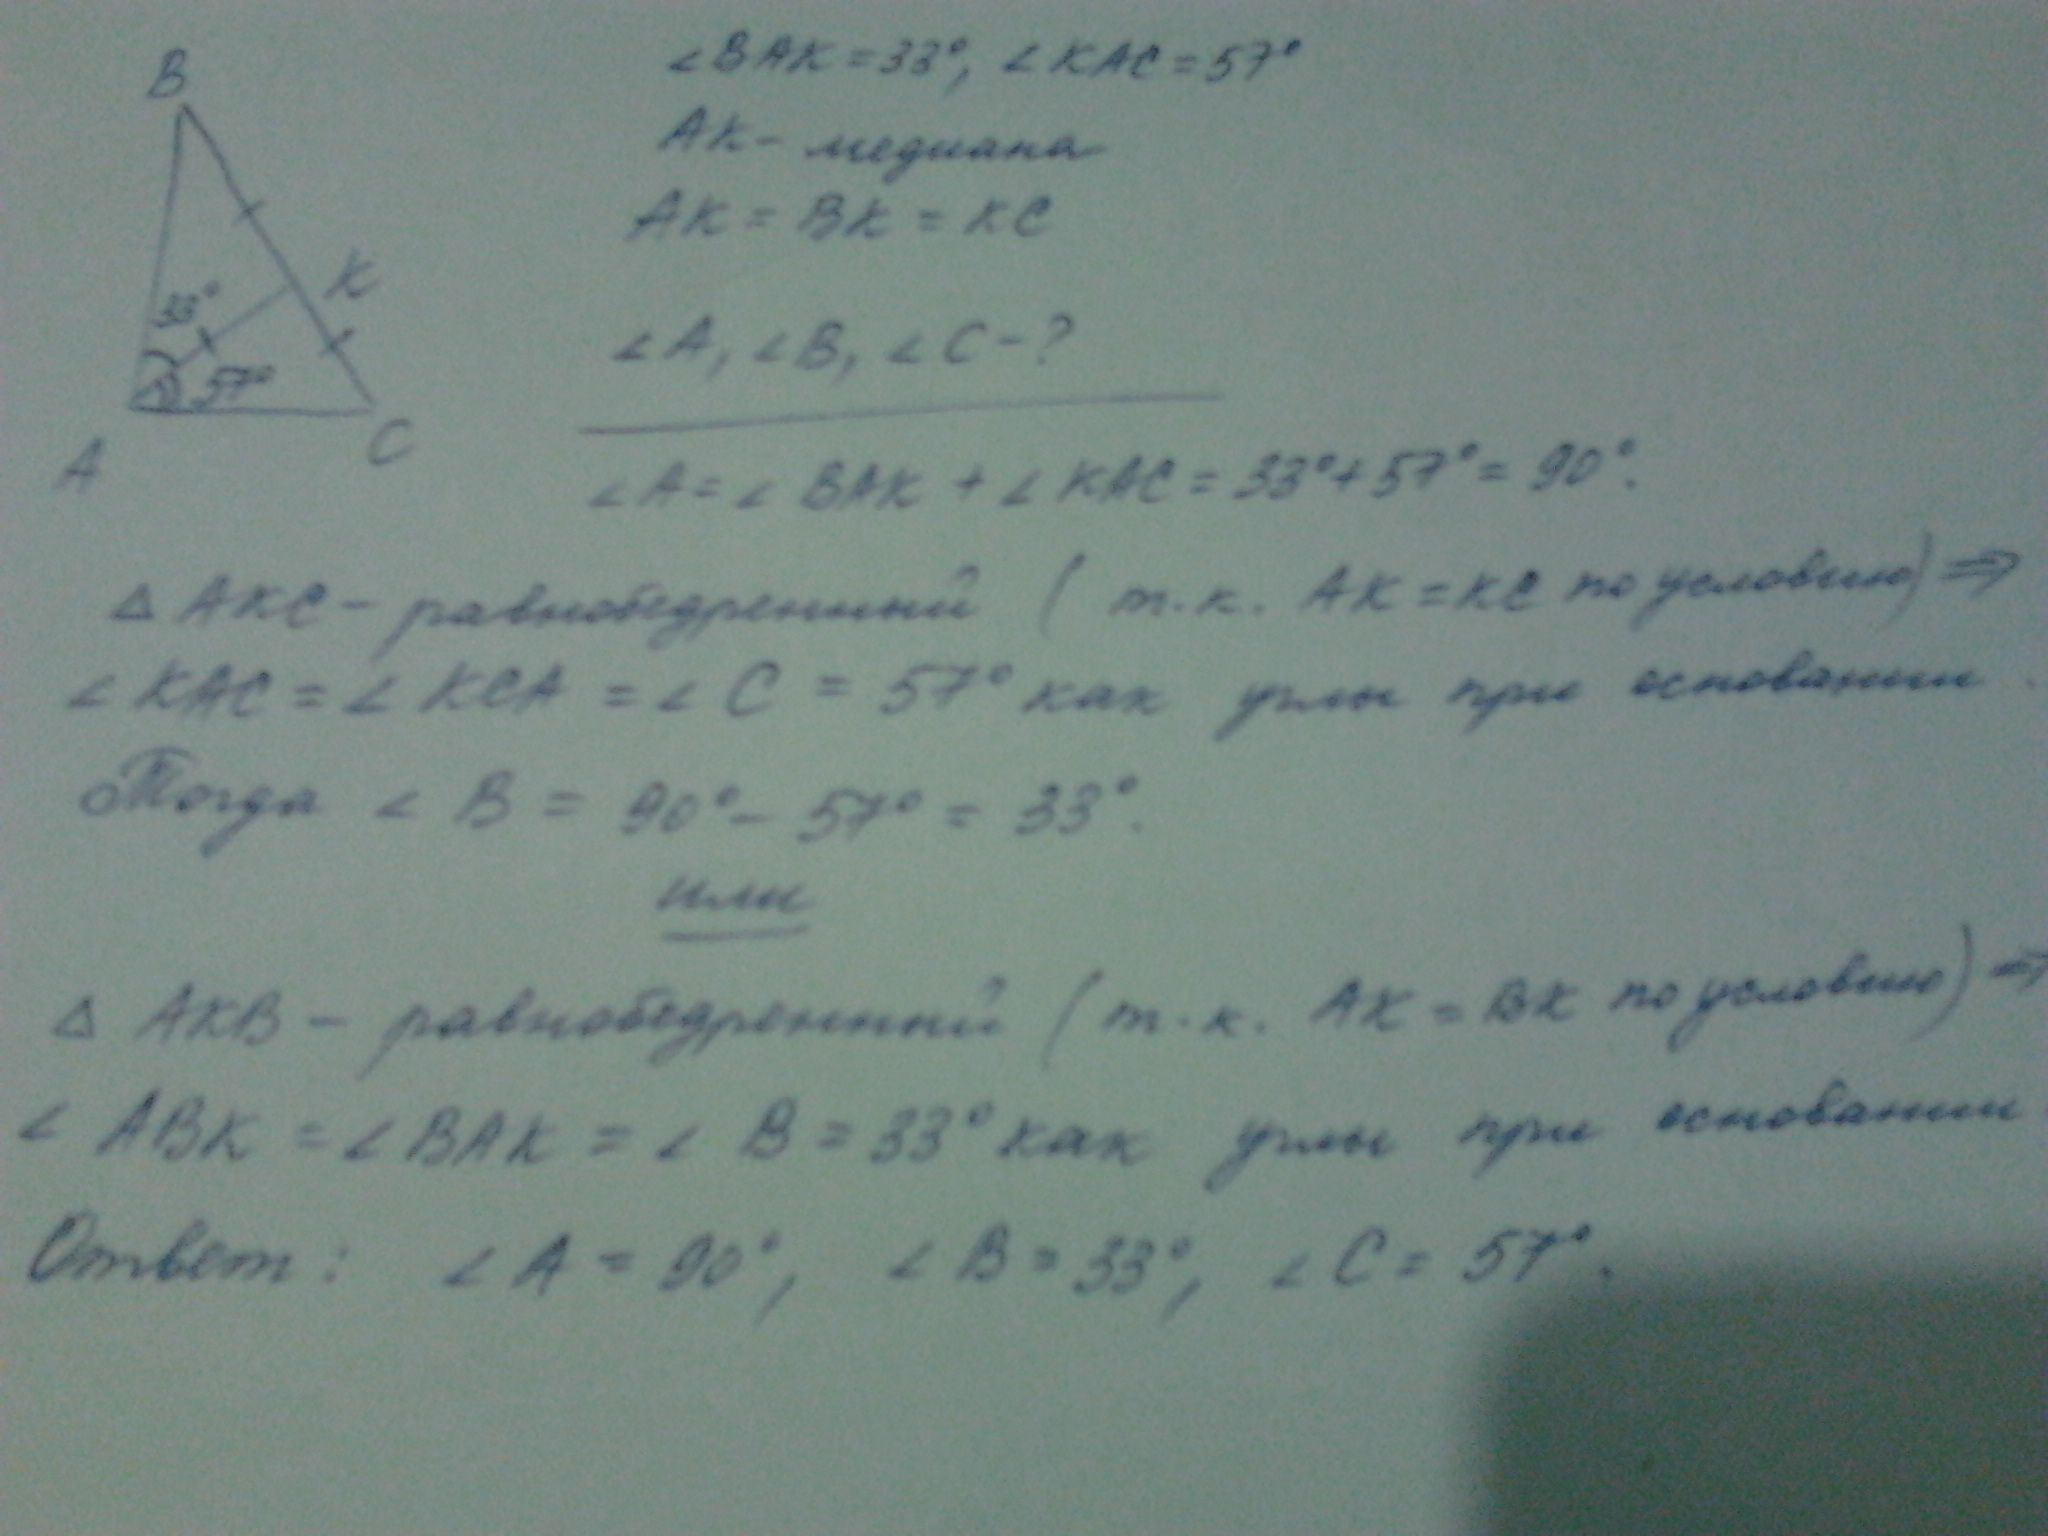 B
∠BAK = 33°, ∠KAC = 57°
AK - медиана
AK = BK = KC
K
33°
∠A, ∠B, ∠C - ?
57°
A
C
∠A = ∠BAK + ∠KAC = 33° + 57° = 90°.
△ AKC - равнобедренный (т.к. AK = KC по условию) ⇒
∠KAC = ∠KCA = ∠C = 57° как углы при основании.
Тогда ∠B = 90° - 57° = 33°.
или
△ AKB - равнобедренный (т.к. AK = BK по условию) ⇒
∠ABK = ∠BAK = ∠B = 33° как углы при основании.
Ответ: ∠A = 90°, ∠B = 33°, ∠C = 57°.